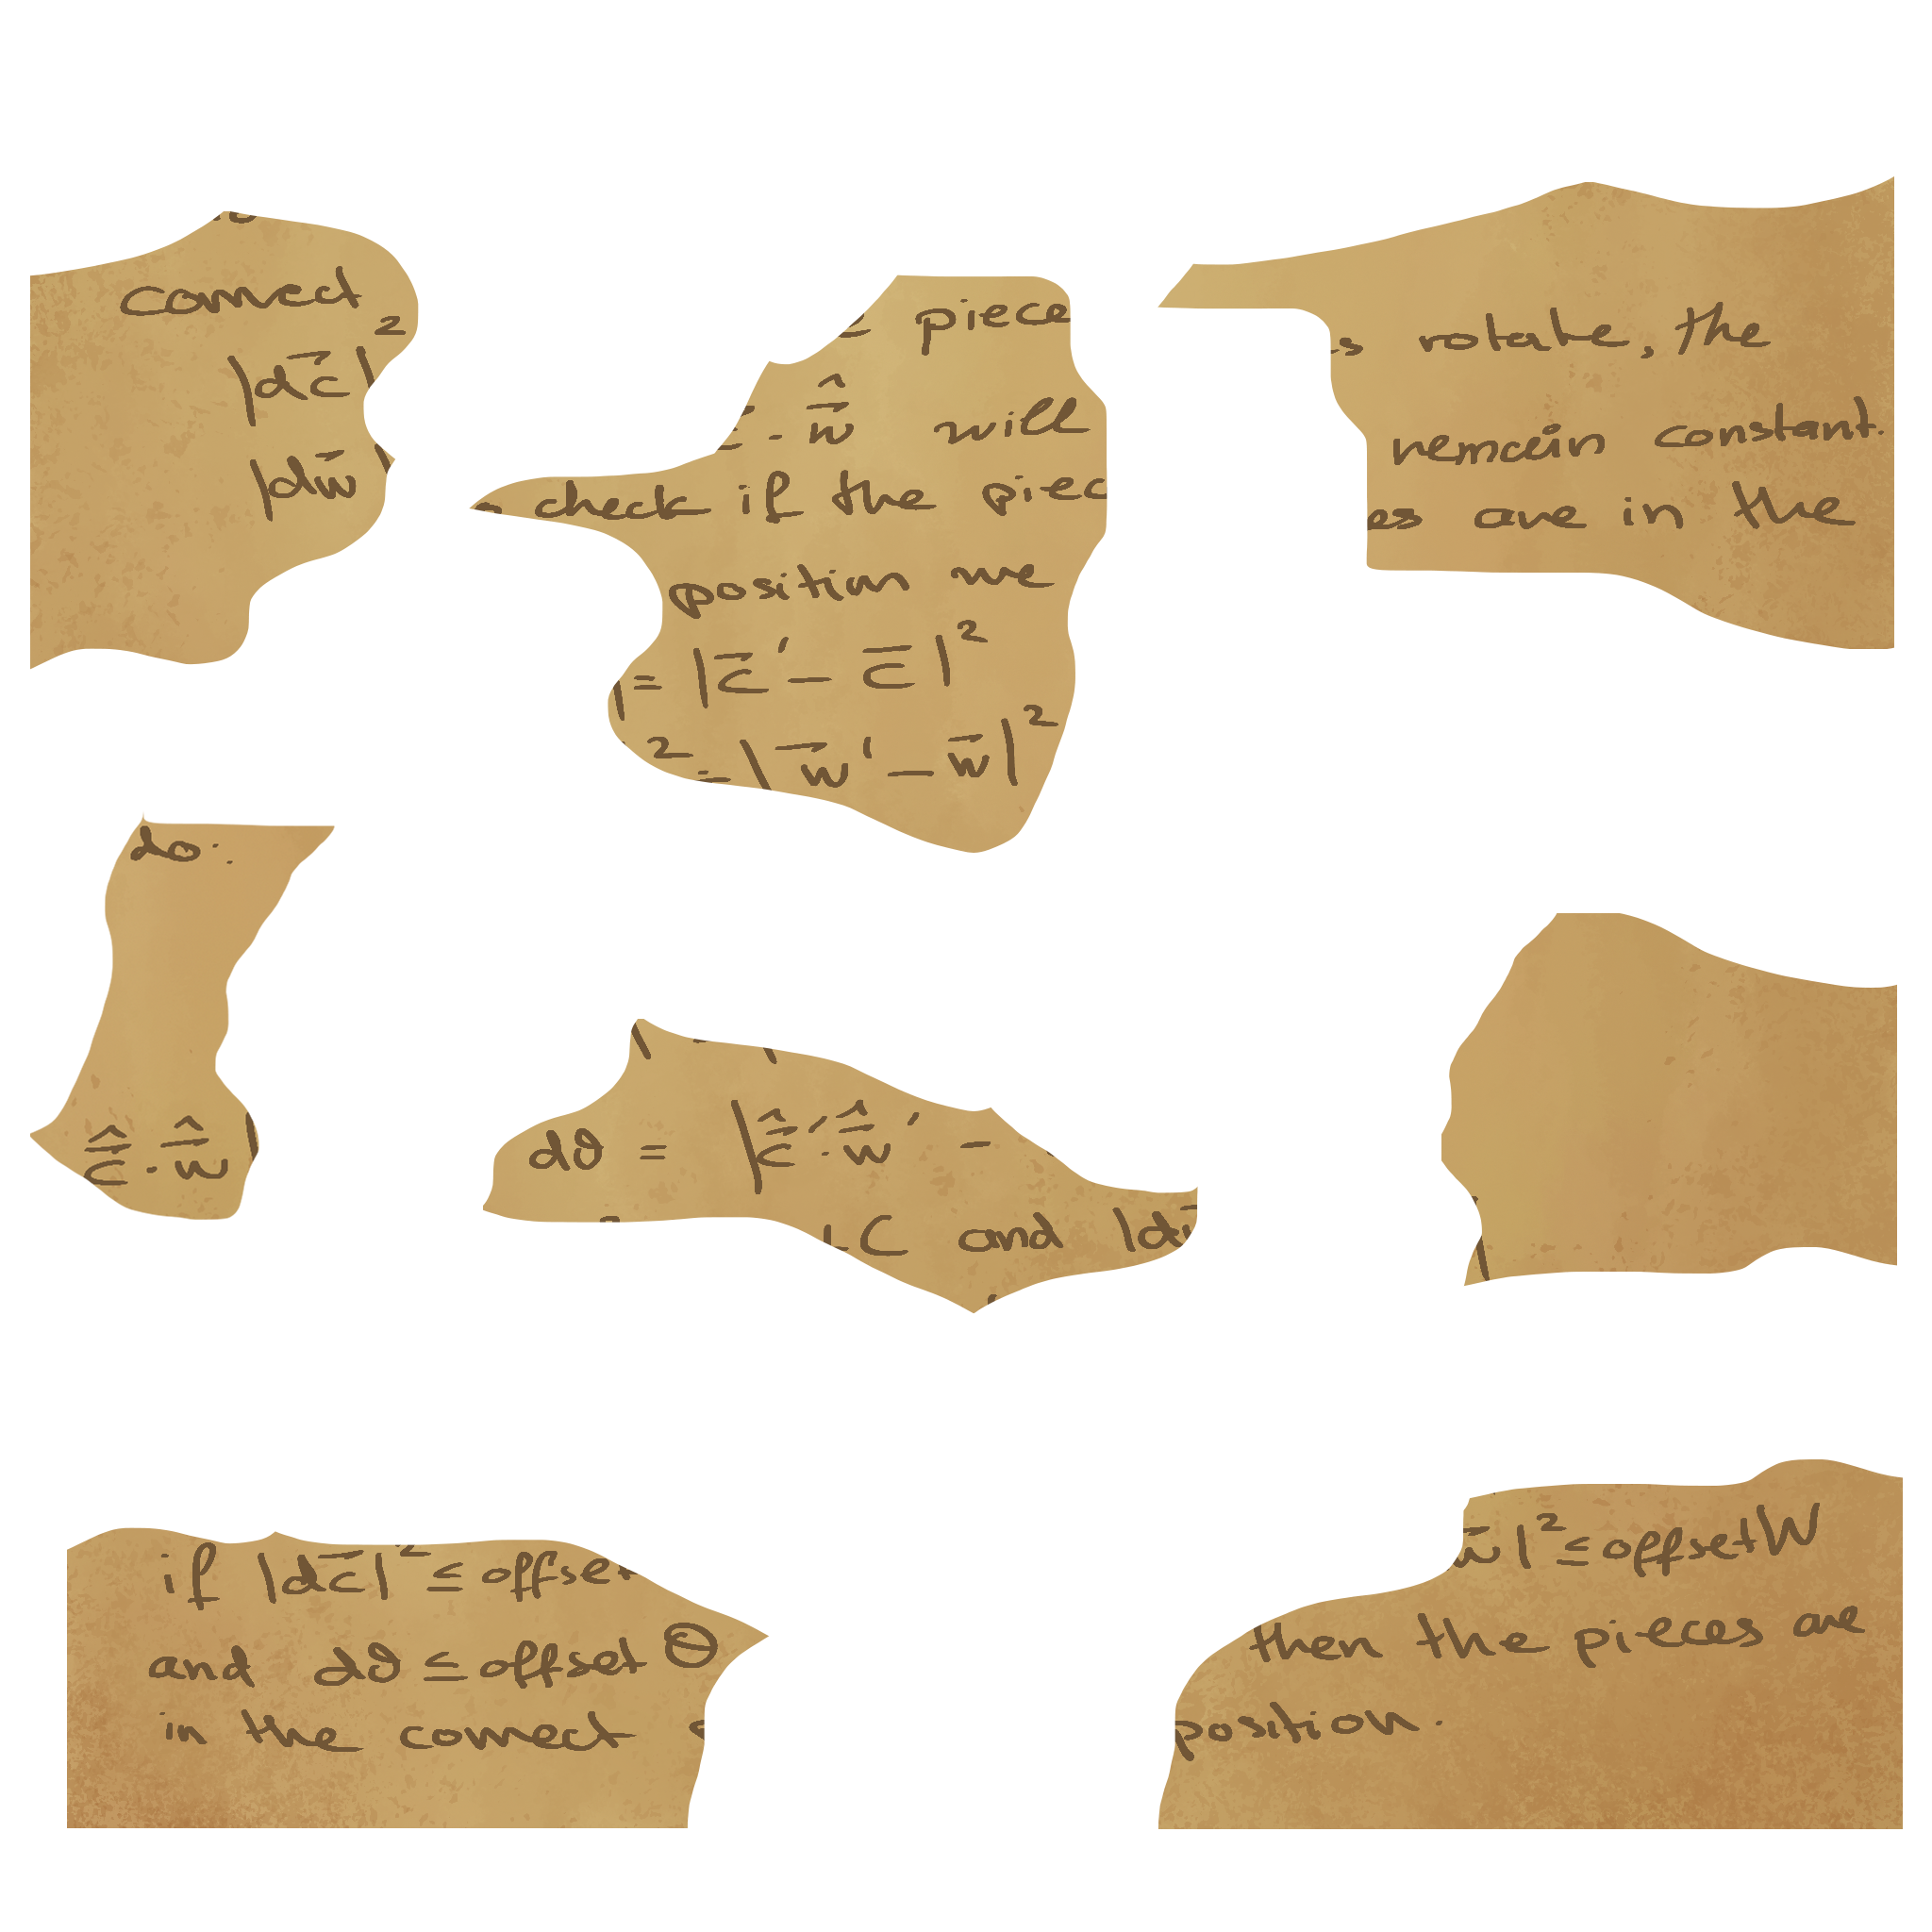 correct
|dc̄|²
|dw̄
piece
. ŵ̄ will
check if the piec
position we
|= |c̄'- c̄|²
²=|w̄'-w̄|²
s rotate, the
remain constant.
es are in the
do:
ĉ̄.ŵ̄|
dθ = |ĉ̄'.ŵ̄' -
C and |dw̄
if |dc̄|² ≤ offset
and dθ ≤ offset Θ
in the correct
w̄|² ≤ offsetW
then the pieces are
position.